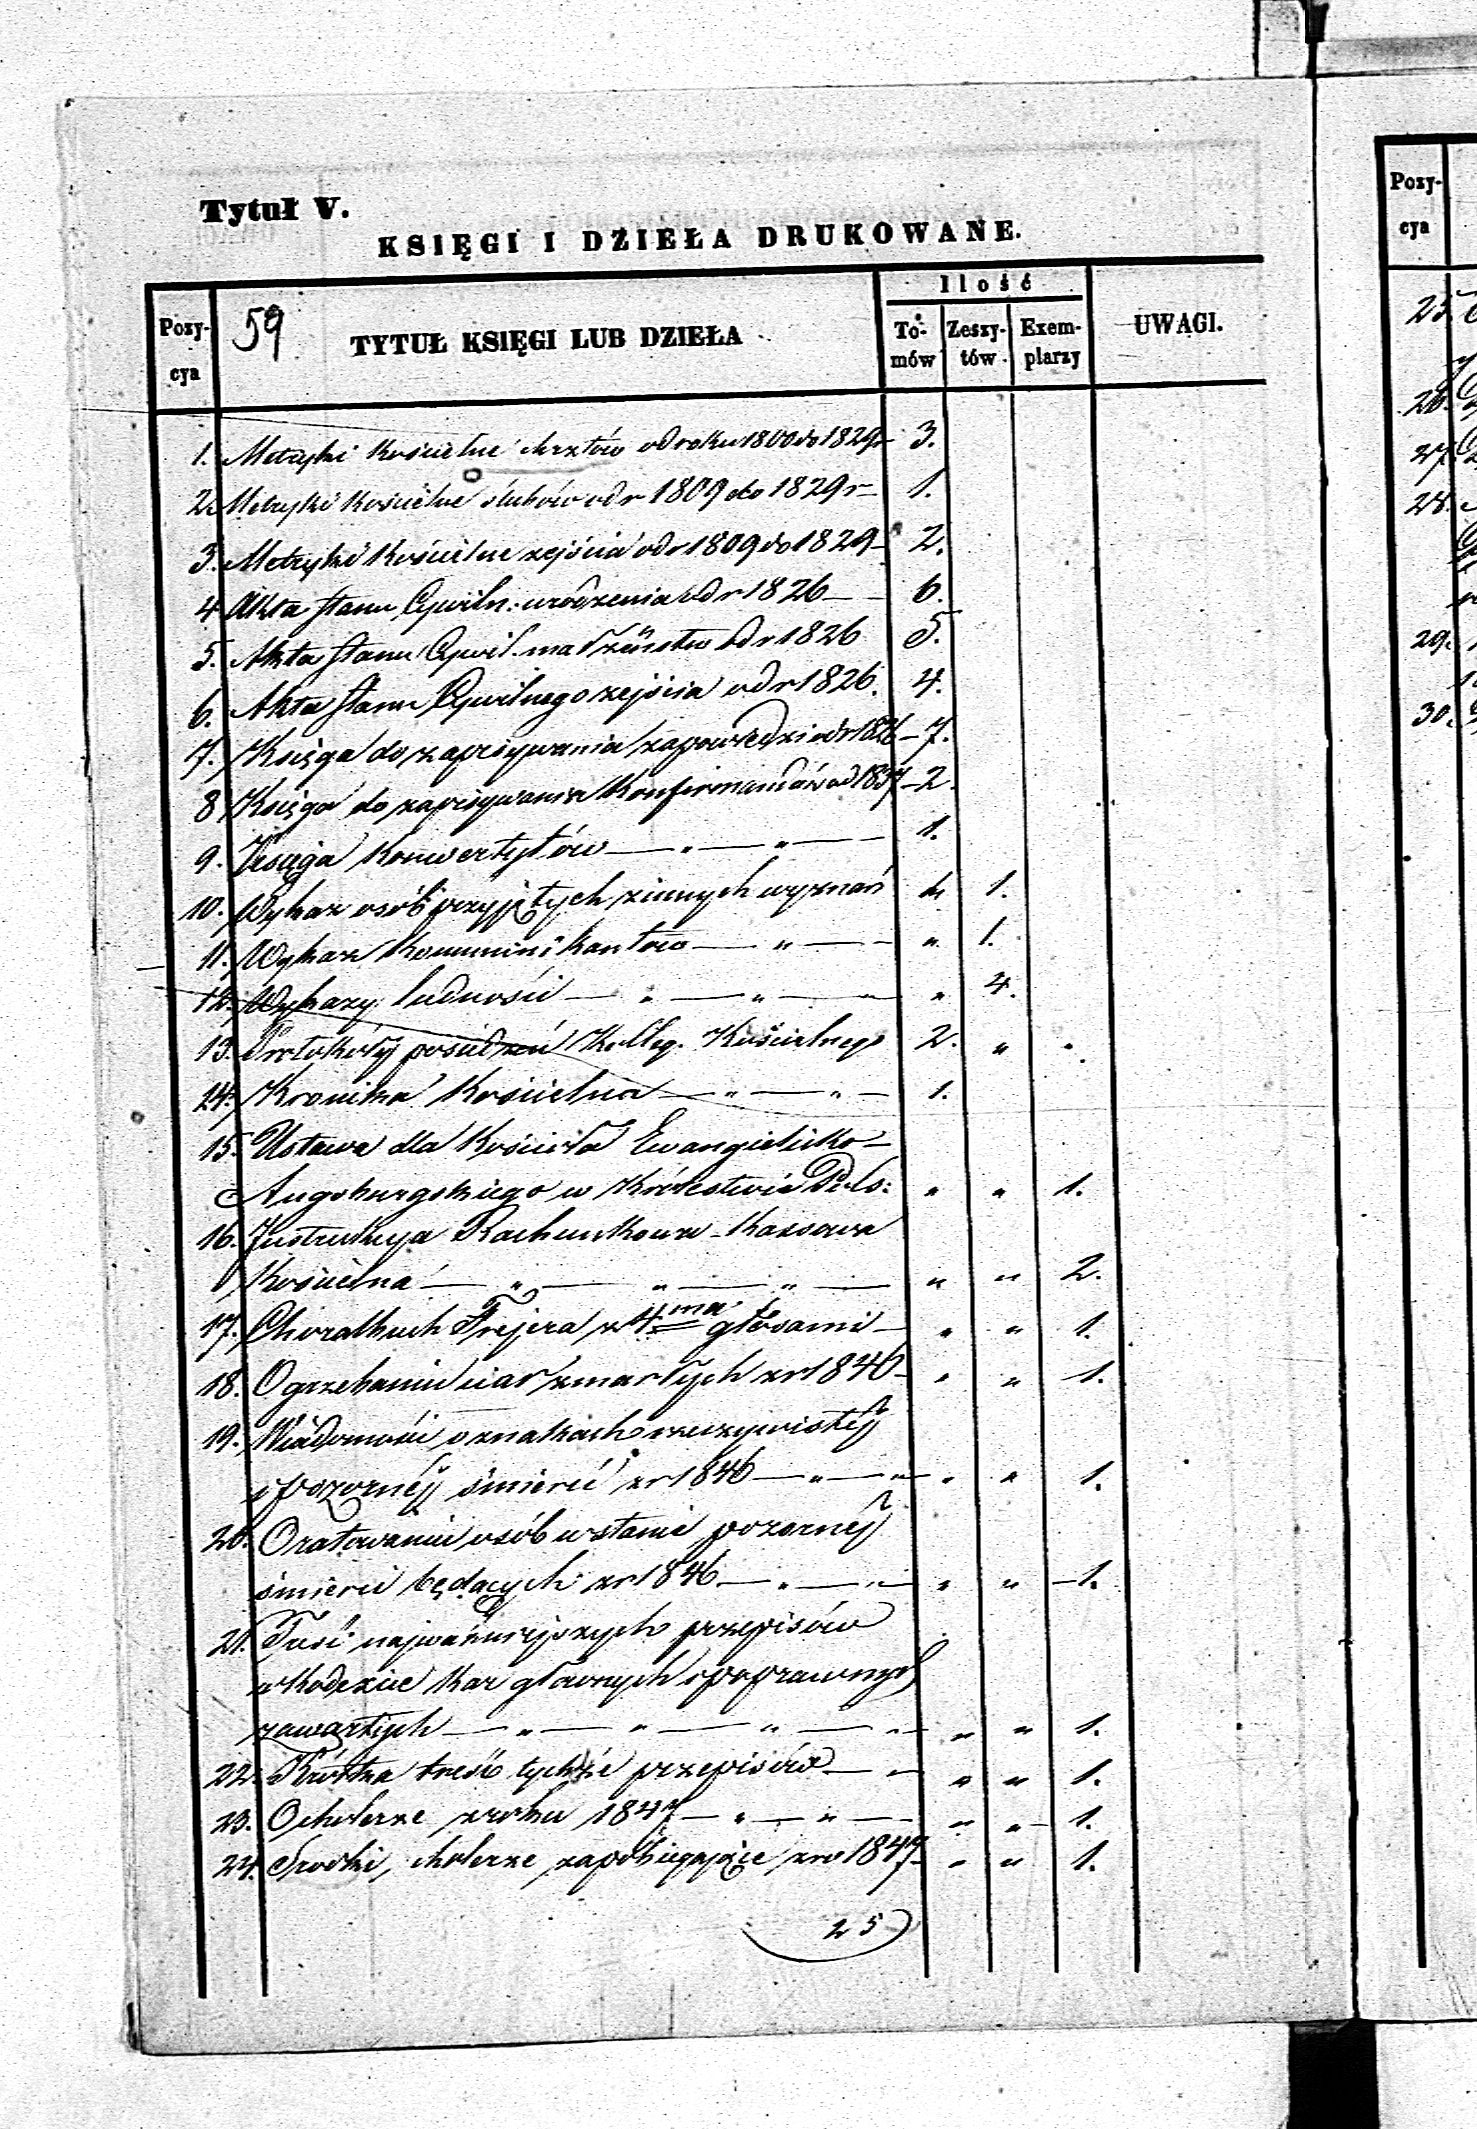 Tytuł V.
KSIĘGI I DZIEŁA DRUKOWANE.
Pozy-cya
59
TYTUŁ KSIĘGI LUB DZIEŁA
Ilość
To-mów
Zeszy-tów
Exem-plarzy
UWAGI.
1. Metryki kościelne chrztów od roku 1800 do 1829 r 3.
2. Metryki kościelne ślubów od r 1809 do 1829 r 1.
3. Metryki kościelne zejścia od r 1809 do 1829 2.
4 Akta stanu Cywiln: urodzenia od r 1826 — 6.
5. Akta stanu Cywil. małżeństw od r 1826 5.
6. Akta stanu Cywilnego zejścia od r 1826. 4.
7. Księga do zapisywania zapowiedzi od r 1826 — 7.
8 Księga do zapisywania Konfirmandów od 1837 — 2.
9. Księga Konwertytów — " — " — 1.
10. Wykaz osób przyjętych z innych wyznań " 1.
11. Wykaz Kommunikantów — " — " 1.
12. Wykazy ludności — " — " — " 4.
13. Protokóły posiedzeń Kolleg. Kościelnego 2. " "
14. Kronika Kościelna — " — " — 1.
15. Ustawa dla Kościoła Ewangielicko-
Augsburgskiego w Królestwie Pols: " " 1.
16. Instrukcya Rachunkowa-Kassowa
Kościelna — " — " — " — " " 2.
17. Choralbuch Frejera z 4ma głosami — " " 1.
18. O grzebaniu ciał zmarłych z r 1846 — " " 1.
19. Wiadomości o znakach rzeczywistéj
i pozornéj śmierci z r 1846 — " — " " " 1.
20. O ratowaniu osób w stanie pozornéj
śmierci będących z r 1846 — " — " " " 1.
21. Treść najważniejszych przepisów
w Kodexie Kar głównych i poprawnych
zawartych — " — " — " — " " " 1.
22. Krótka treść tychże przepisów — " " " 1.
23. O cholerze z roku 1847 — " — " — " " 1.
24. Środki, cholerze zapobiegające z ro 1847 " " 1.
25
Pozy-cya
25.
26.
27.
28.
29.
30.